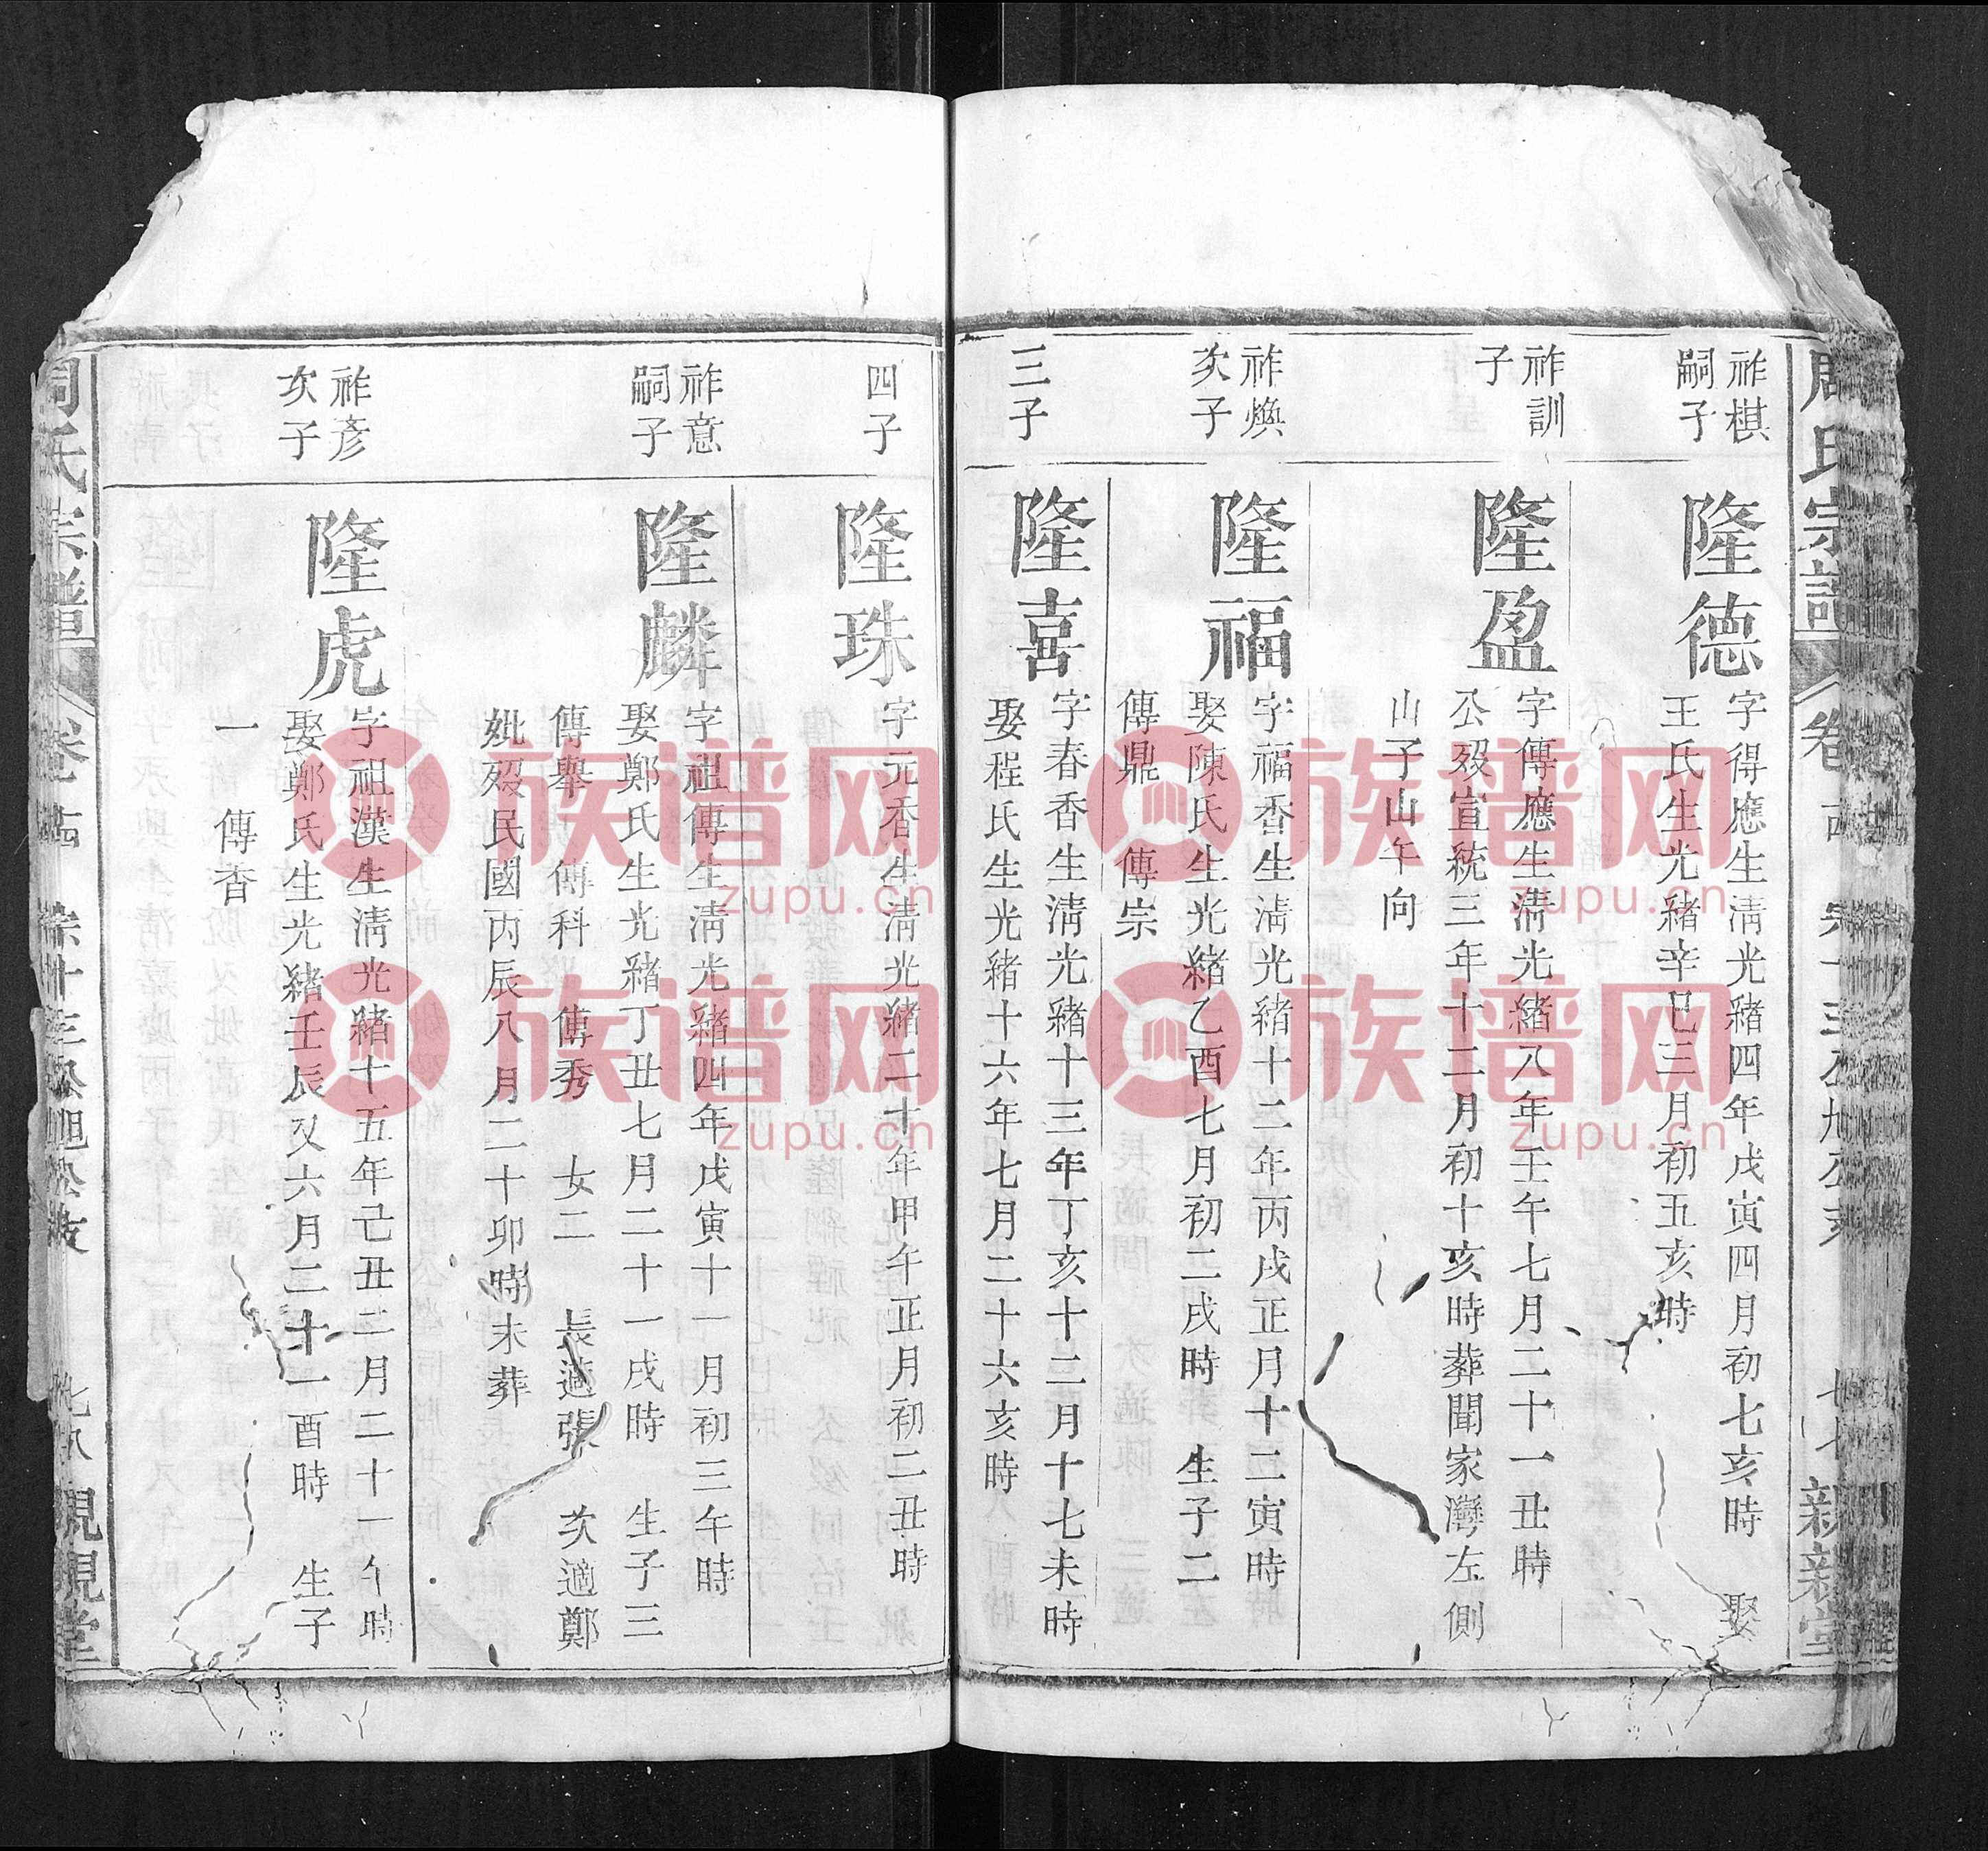 周氏宗譜
卷
親親堂
祚棋
嗣子
隆德
字得應生淸光緒四年戊寅四月初七亥時 娶
王氏生光緒辛巳三月初五亥時
祚訓
子
隆盈
字傳應生淸光緒八年壬午七月二十一丑時
公歿宣統三年十二月初十亥時葬聞家灣左側
山子山午向
祚煥
次子
隆福
字福香生淸光緒十二年丙戌正月十二寅時
娶陳氏生光緒乙酉七月初二戌時 生子二
傳鼎 傳宗
三子
隆喜
字春香生淸光緒十三年丁亥十二月十七未時
娶程氏生光緒十六年七月二十六亥時
四子
隆珠
字元香生淸光緒二十年甲午正月初二丑時
祚意
嗣子
隆麟
字祖傳生淸光緒四年戊寅十一月初三午時
娶鄭氏生光緒丁丑七月二十一戌時 生子三
傳舉 傳科 傳秀 女二 長適張 次適鄭
妣歿民國丙辰八月二十卯時未葬
祚彥
次子
隆虎
字祖漢生淸光緒十五年己丑二月二十一午時
娶鄭氏生光緒壬辰又六月二十一酉時 生子
一 傳香
周氏宗譜
卷
族谱网
zupu.cn
族谱网
zupu.cn
族谱网
zupu.cn
族谱网
zupu.cn